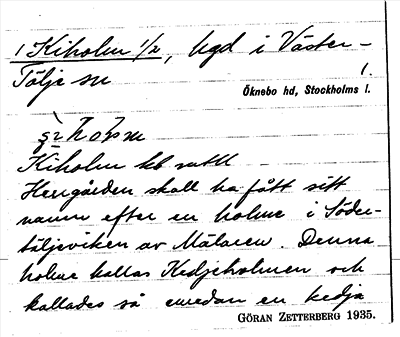 1 Kiholm 1/2, hgd i Väster-
Tälje sn 1.
Öknebo hd, Stockholms l.
Kiholm kb
Herrgården skall ha fått sitt
namn efter en holme i Söder-
täljeviken av Mälaren. Denna
holme kallas Kedjeholmen och
kallades så emedan en kedja
GÖRAN ZETTERBERG 1935.